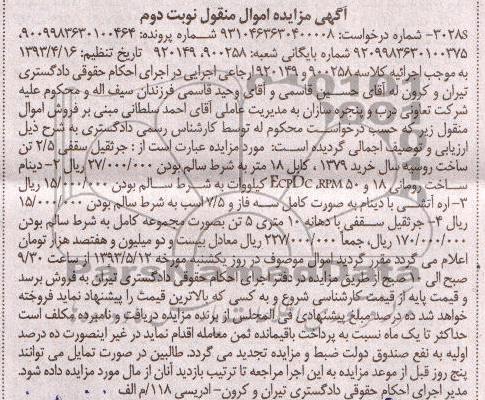 آگهی مزایده اموال منقول نوبت دوم
۳۰۲۸s- شماره درخواست: ۹۳۱۰۴۶۳۶۳۰۴۰۰۰۰۸ شماره پرونده: ۹۰۰۹۹۸۳۶۳۰۱۰۰۴۶۴،
۹۲۰۹۹۸۳۶۳۰۱۰۰۳۷۵ شماره بایگانی شعبه: ۹۰۰۲۵۸، ۹۲۰۱۴۹ تاریخ تنظیم: ۱۳۹۳/۴/۱۶
به موجب اجرائیه کلاسه ۹۰۰۲۵۸ و ۹۲۰۱۴۹ ارجاعی اجرایی در اجرای احکام حقوقی دادگستری
تیران و کرون له آقای قاسمی و آقای وحید قاسمی فرزندان سیف اله و محکوم علیه
شرکت تعاونی درب و پنجره سازان به مدیریت عاملی آقای احمد سلطانی مبنی بر فروش اموال
منقول زیر که حسب درخواست محکوم له توسط کارشناس رسمی دادگستری به شرح ذیل
ارزیابی و توصیف اجمالی گردیده است: مورد مزایده عبارت است از: جرثقیل سقفی ۲/۵ تن
ساخت روسیه سال خرید ۱۳۷۹، کابل ۱۸ متر به شرط سالم بودن ۲۷/۰۰۰/۰۰۰ ریال ۲- دینام
ساخت رومانی ۱۸ و ۵۰ EcpDc ,RPM کیلووات به شرط سالم بودن ۱۵/۰۰۰/۰۰۰ ریال
۳- اره آتشی با دینام به صورت کامل سه فاز و ۷/۵ اسب به شرط سالم بودن ۱۵/۰۰۰/۰۰۰
ریال ۴- جرثقیل سقفی با دهانه ۱۰ متری ۵ تن بصورت مجموعه کامل به شرط سالم بودن
۱۷۰/۰۰۰/۰۰۰ ریال، جمعاً ۲۲۷/۰۰۰/۰۰۰ ریال معادل بیست و دو میلیون و هفتصد هزار تومان
اعلام می گردد مقرر گردید اموال موصوف در روز یکشنبه مورخه ۱۳۹۳/۵/۱۲ از ساعت ۹/۳۰
صبح الی ۱۰ صبح از طریق مزایده در دفتر اجرای احکام حقوقی دادگستری تیران به فروش برسد
و قیمت پایه از قیمت کارشناسی شروع و به کسی که بالاترین قیمت را پیشنهاد نماید فروخته
خواهد شد ده درصد مبلغ پیشنهادی فی المجلس از برنده مزایده دریافت و نامبرده مکلف است
حداکثر تا یک ماه نسبت به پرداخت باقیمانده ثمن معامله اقدام نماید در غیر اینصورت ده درصد
اولیه به نفع صندوق دولت ضبط و مزایده تجدید می گردد. طالبین در صورت تمایل می توانند
پنج روز قبل از موعد مزایده به این اجرا مراجعه تا ترتیب بازدید آنان از مال مورد مزایده داده شود.
مدیر اجرای احکام حقوقی دادگستری تیران و کرون- ادریسی ۱۱۸/م الف
ParsNamadData